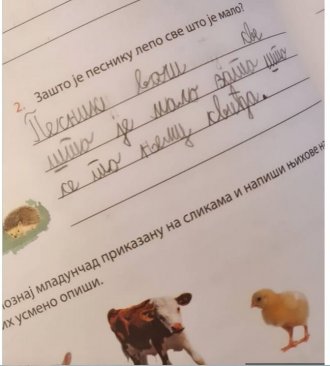 2. Зашто је песнику лепо све што је мало?
Песник воли све
што је мало зато што
се то њему свиђа.
ознај младунчад приказану на сликама и напиши њихове
их усмено опиши.